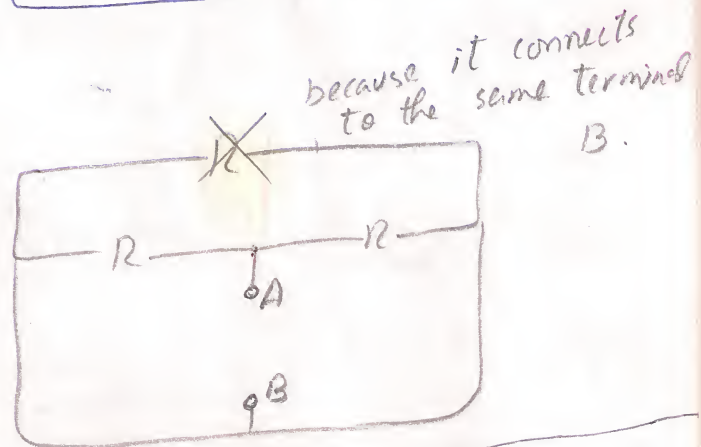 because it connects
to the same terminal
B.
R
R
R
A
B